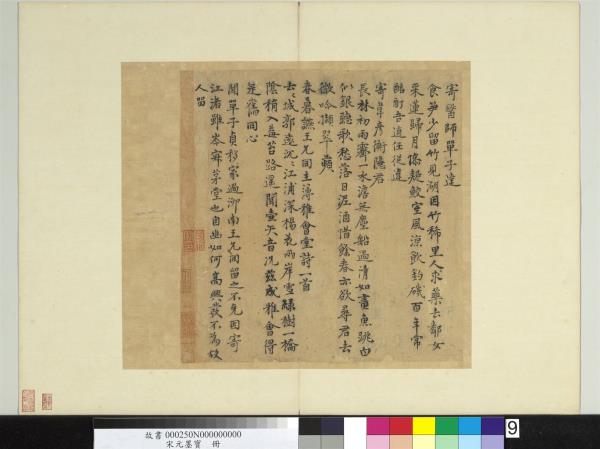 寄醫師單子達
食笋少留竹見湖因竹稀里人求藥去鄰女
采蓮歸月傍疑室風涼飲釣磯百年常
酩酊吾道任從違
寄韋彥衡隱君
長林初雨霽一水澹無塵船過清如畫魚跳白
似銀聽歌愁落日泥酒惜餘春亦欲尋君去
微吟擷翠蘋
春暮讌王元同主簿雅會堂詩一首
去去城郭遠沈沈江浦深楊花兩岸雪綠樹一橋
陰積入莓苔路還聞壺矢音況茲成雅會得
是舊同心
聞單子貞移家過泖南王元同留之不克因寄
江渚雖岑寂茅堂也自幽如何高興發不為故
人留
故書 000250N000000000
宋元墨寶 冊
9